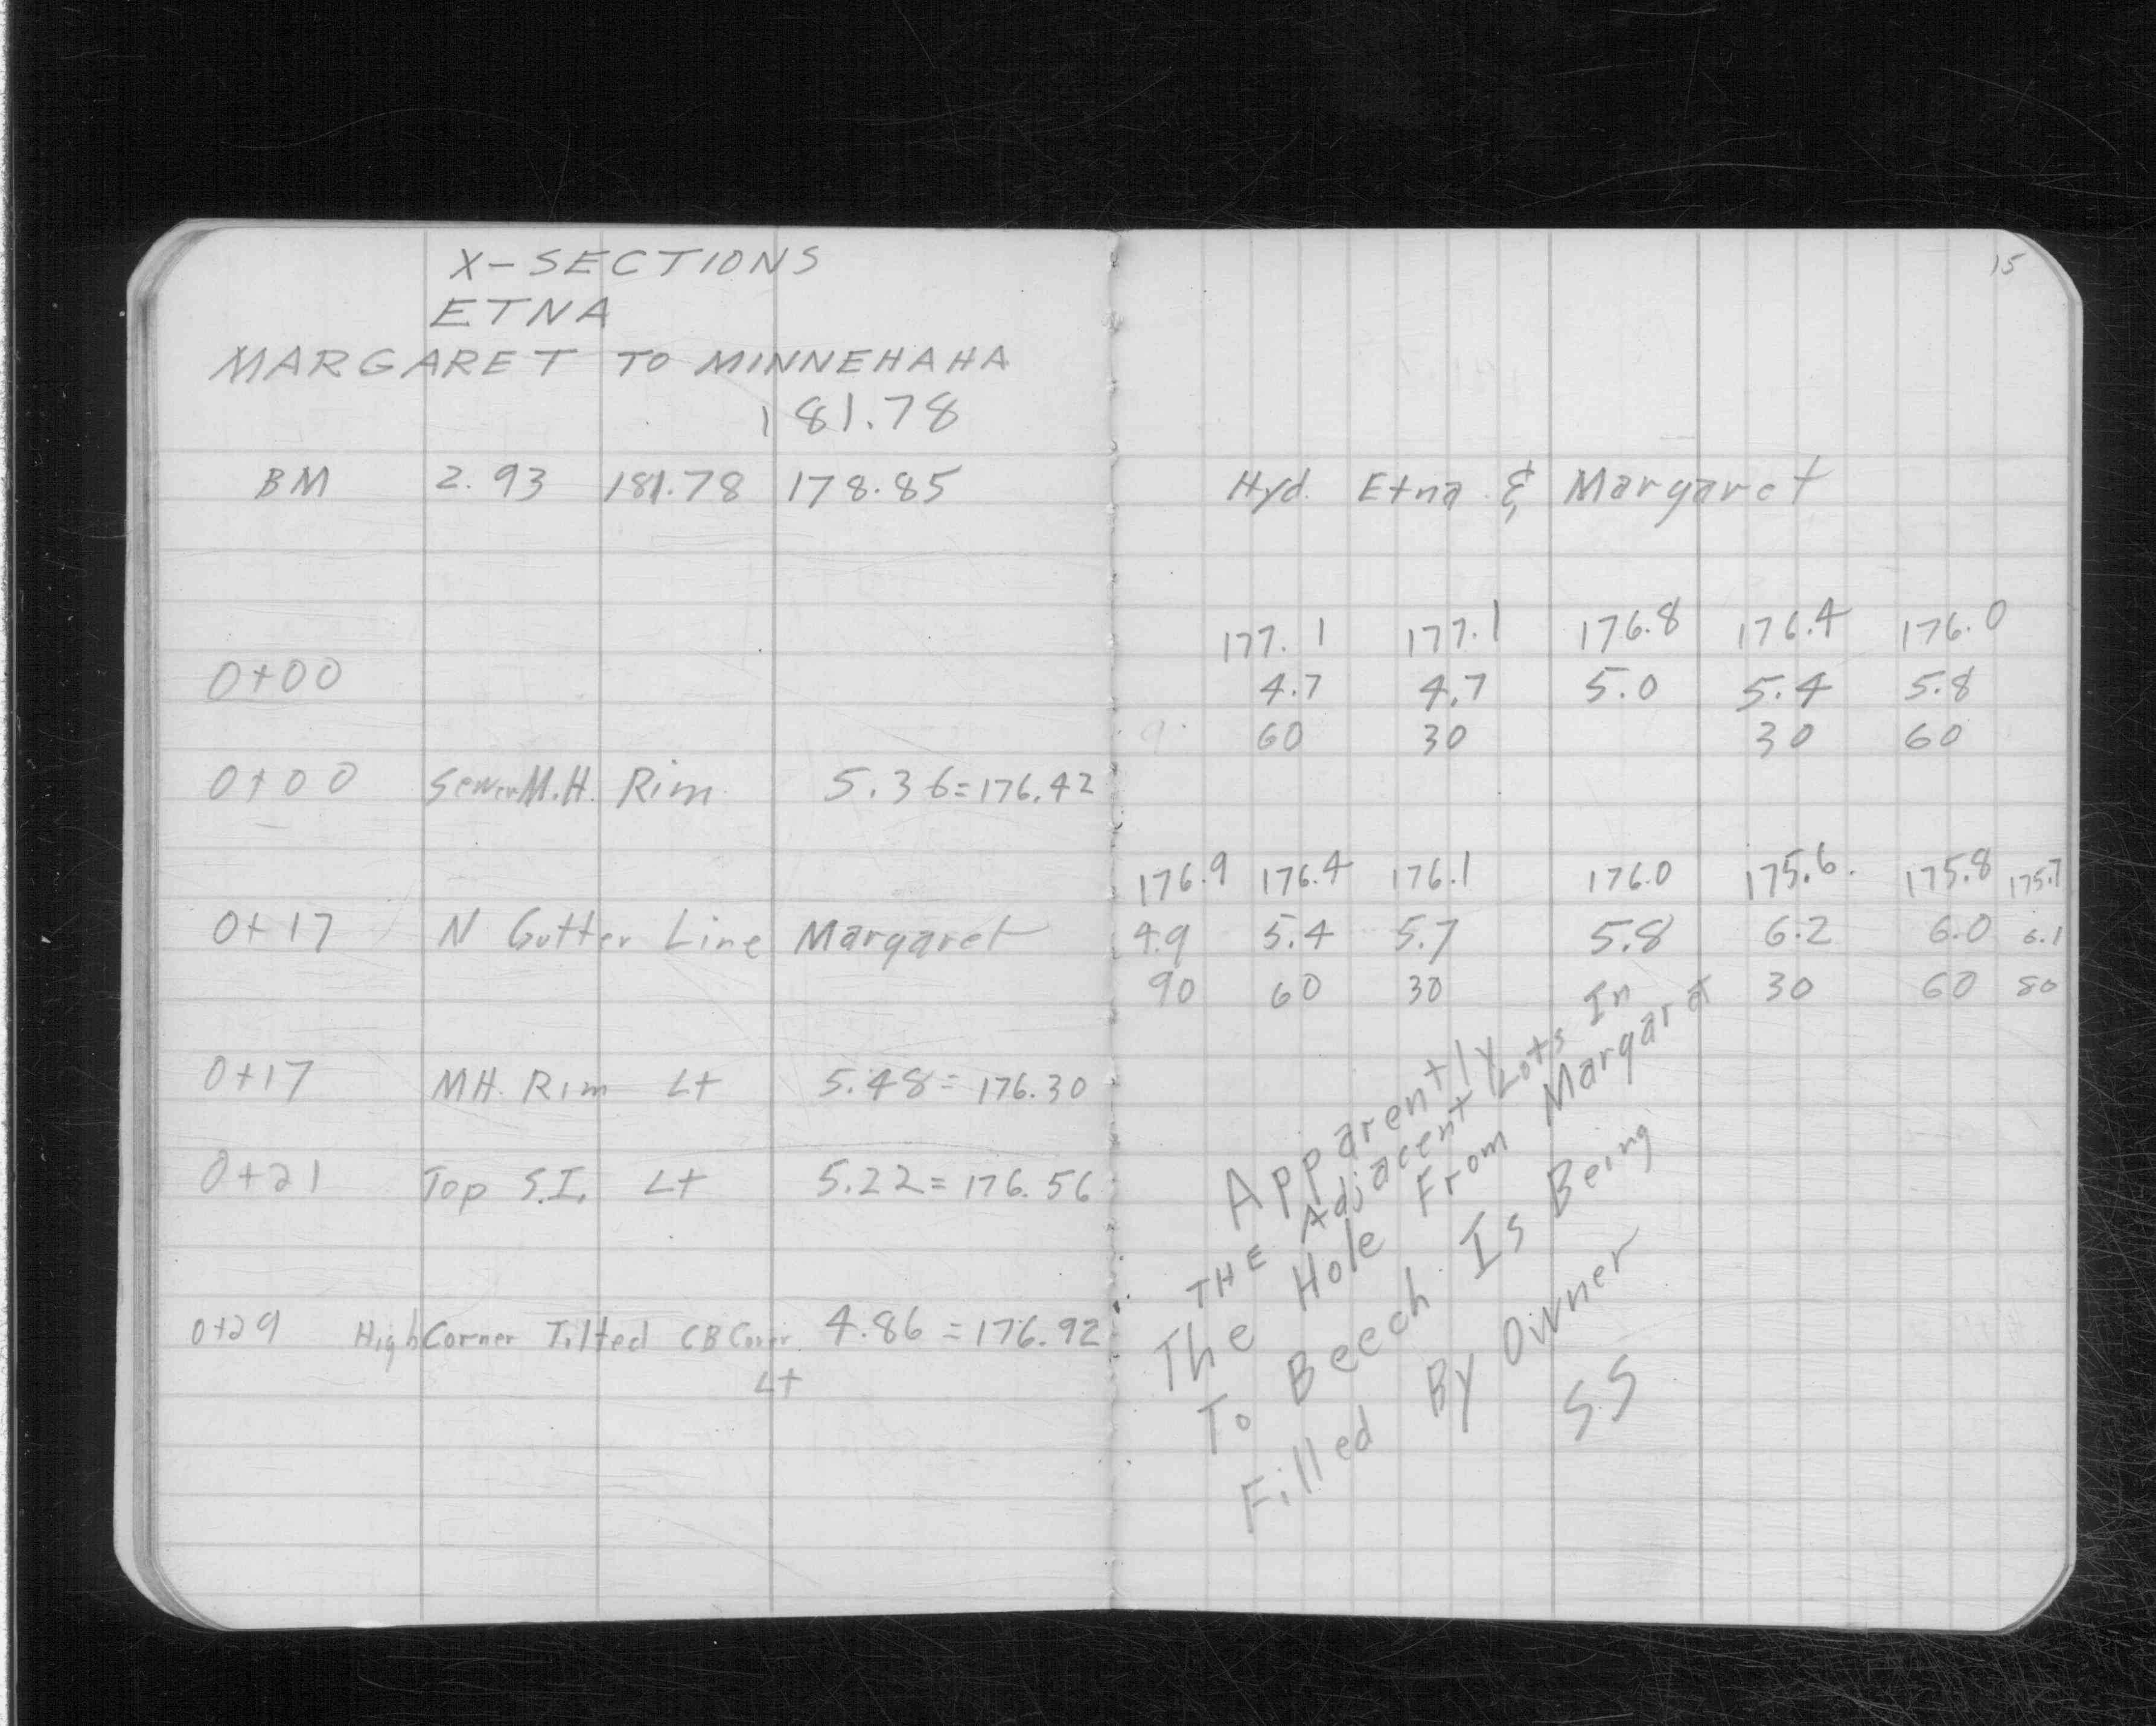 X-SECTIONS
ETNA
MARGARET TO MINNEHAHA
181.78
BM 2.93 181.78 178.85
0+00
0+00 Sewer M.H. Rim 5.36=176.42
0+17 N Gutter Line Margaret
0+17 MH. Rim Lt 5.48= 176.30
0+21 Top S.I. Lt 5.22= 176.56
0+29 High Corner Tilted CB Cover 4.86 =176.92
Lt
15
Hyd. Etna & Margaret
177.1 177.1 176.8 176.4 176.0
4.7 4.7 5.0 5.4 5.8
60 30 30 60
176.9 176.4 176.1 176.0 175.6. 175.8 175.7
4.9 5.4 5.7 5.8 6.2 6.0 6.1
90 60 30 30 60 80
Apparently
THE Adjacent Lots In
The Hole From Margaret
To Beech Is Being
Filled By Owner
SS